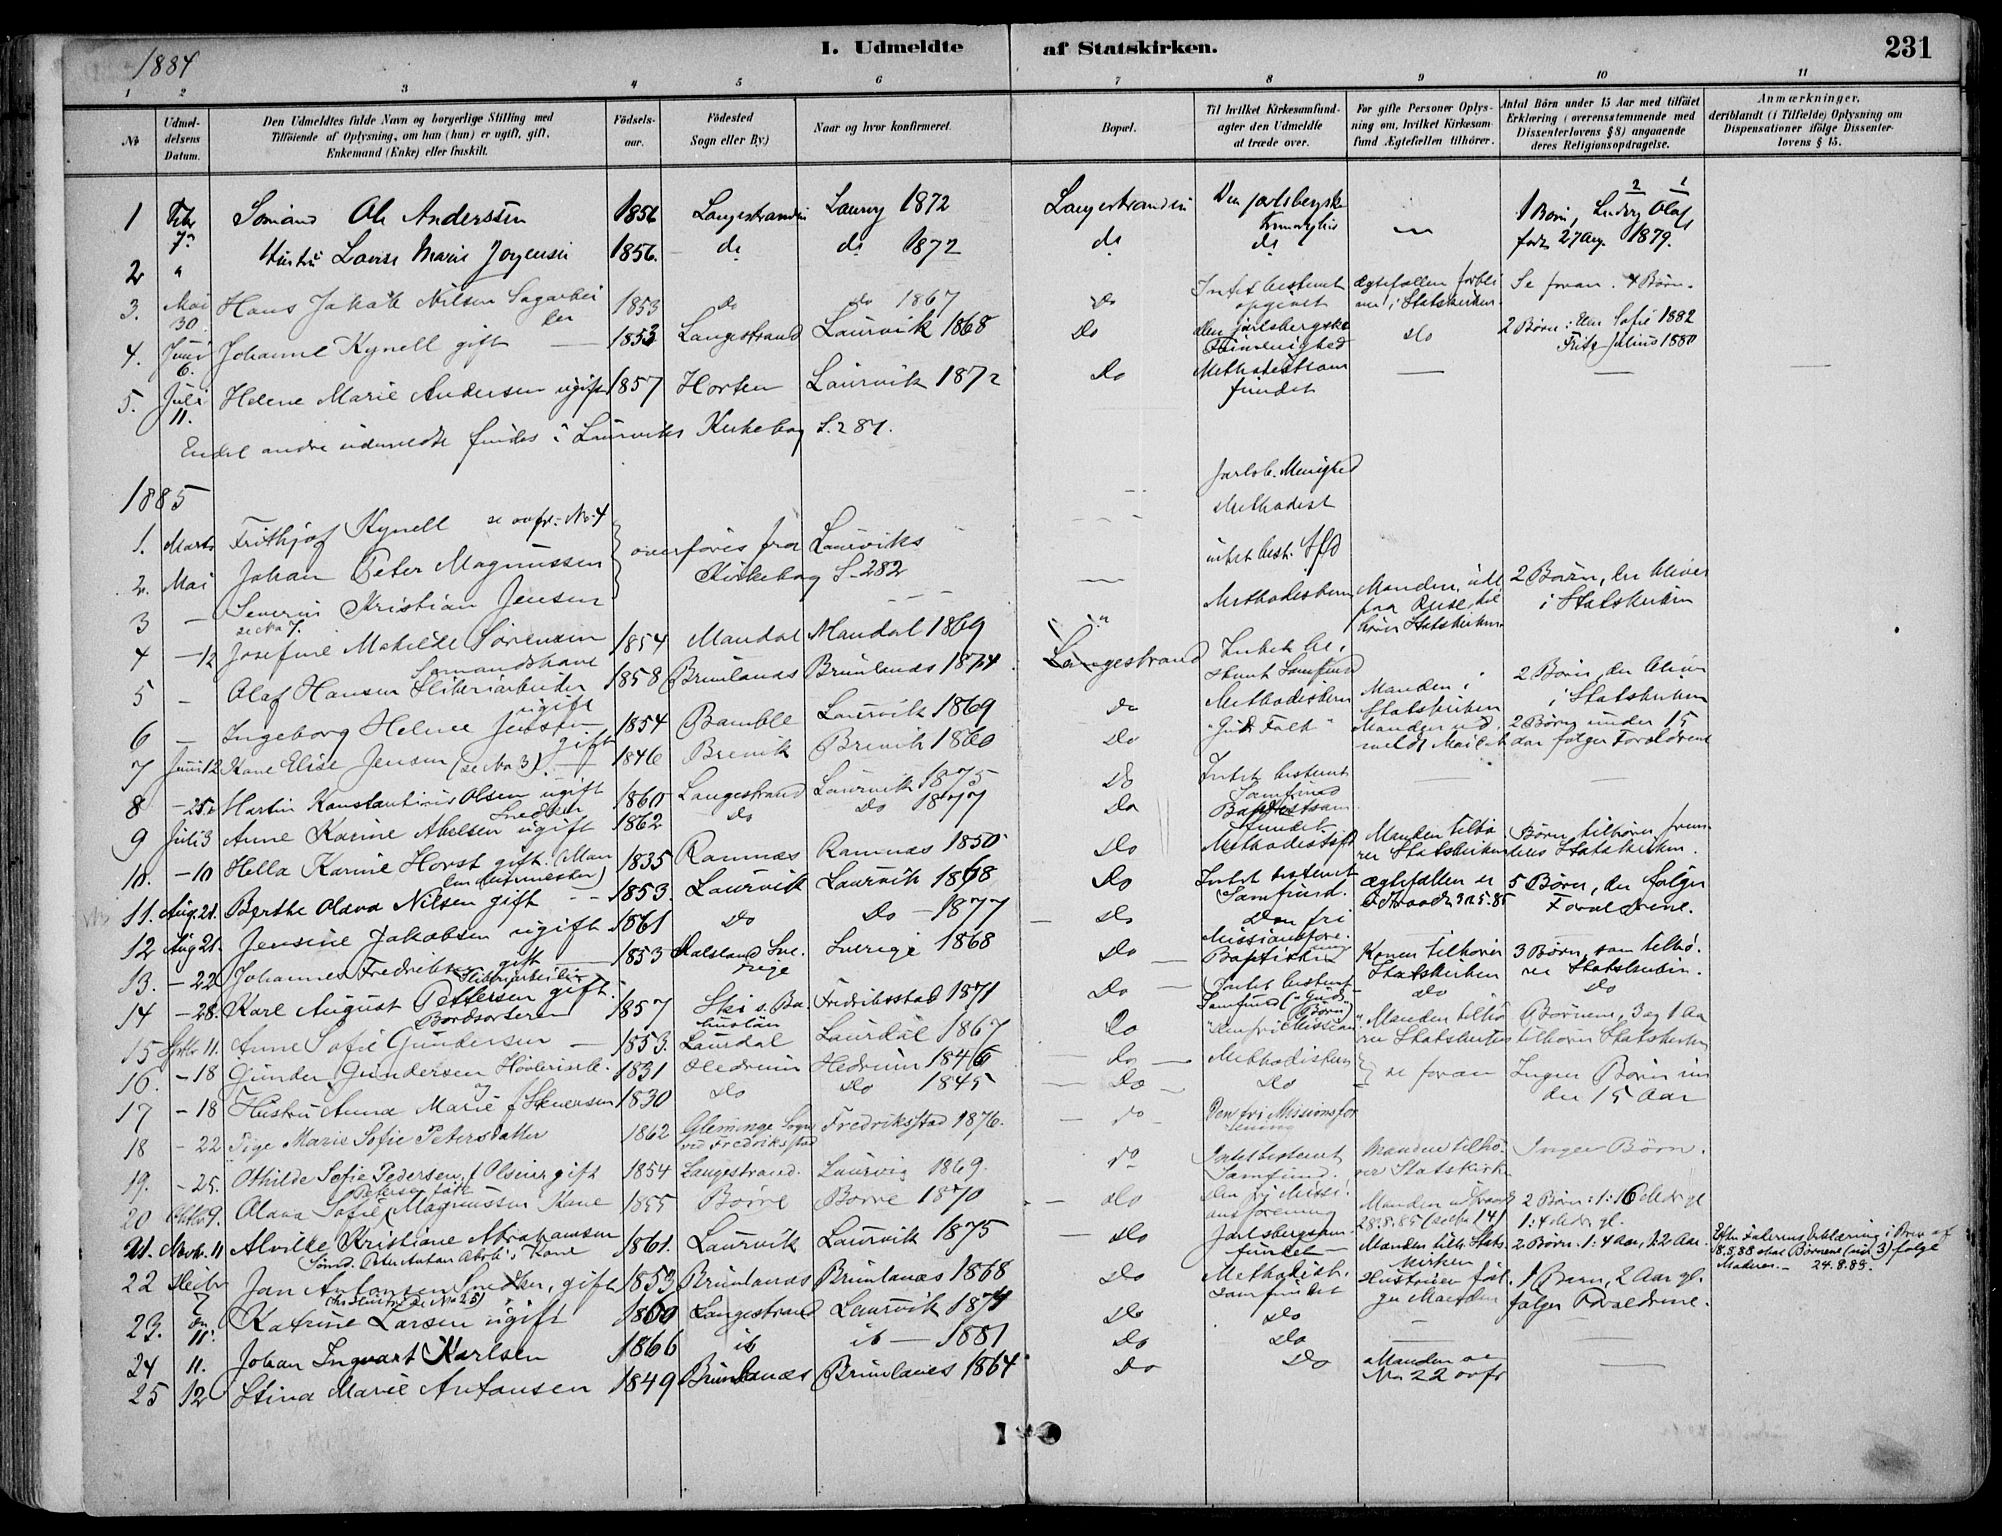 1884
I. Udmeldte af Statskirken.
231
1 2 3 4 5 6 7 8 9 10 11
№
Udmeldelsens Datum.
Den Udmeldtes fulde Navn og borgerlige Stilling med
Tilföiende af Oplysning, om han (hun) er ugift, gift,
Enkemand (Enke) eller fraskilt.
Födselsaar.
Födested
Sogn eller By.)
Naar og hvor konfirmeret.
Bopæl.
Til hvilket Kirkesamfund
agter den Udmeldte
at træde over.
For gifte Personer Oplysning
om, hvilket Kirkesamfund
Ægtefællen tilhörer.
Antal Börn under 15 Aar med tilföiet
Erklæring (overensstemmende med
Dissenterlovens § 8) angaaende
deres Religionsopdragelse.
Anmærkninger,
deriblandt (i Tilfælde) Oplysning om
Dispensationer ifölge Dissenterlovens
§ 15.
1 Febr 7 Sömand Ole Anderssen 1856 Langestranden Laurvig 1872 Langestranden Den jarlsbergske 1 Barn, Ludvig Olaf
födt 27 Aug. 1879.
2 " Hustru Lovise Marie Jörgensen 1856. do do 1872 do do
3. Mai 30 Hans Jakob Nilsen Sagarbeider 1853 do do 1867 do Intet bestemt opgivet ægtefællen forbliver i Statskirken. Se foran. 4 Börn.
4. Juni 6. Johanne Kynell gift 1853 Langestrand Laurvik 1868 Do Den jarlsbergske Frimenighed Do 2 Börn: Else Sofie 1882
Fritz Julius 1880
5. Juli 11. Helene Marie Andersen ugift 1857 Horten Laurvik 1872 Do Methodistsamfundet — — —
Endel andre udmeldte findes i Laurviks Kirkebog S. 281.
1885
1. Marts Frithjof Kynell se ovfr. No 4 Jarlsb. Menighed
2. Mai Johan Peter Magnussen overföres fra Laurviks Kirkebog S. 282 Methodist
3 — Severin Kristian Jensen se No 7. intet best. Sfd
4 — 12 Josefine Mathilde Sörensen Sömandskone 1854 Mandal Mandal 1869 " Methodistern Manden, ude paa Reise, tilhörer Statskirken 2 Börn, der bliver i Statskirken
5 — Olaf Hansen Sliberiarbeider ugift 1858 Brunlanæs Brunlanæs 1874 Langestrand Intet bestemt Samfund
6 — Ingeborg Helene Jensen gift 1854 Bamble Laurvik 1869 do Methodistern Manden i Statskirken 2 Börn, der bliver i Statskirken
7 Juni 12 Kone Elise Jensen (se No 3). 1846 Brevik Brevik 1860 Do "Guds Folk" Manden udmeldt Mai d. A. 2 Börn under 15 aar fölger Forældrene
8 — 25. Martin Konstantinius Olsen ugift Snedker 1860 Langestrand Laurvik 1875 Do Intet bestemt Samfund
9 Juli 3 Anne Karine Abelsen ugift 1862 Do Do 1877 Do Baptistsamfundet.
10. — 10 Hella Karine Horst gift. 1835 Ramnæs Ramnæs 1850 Do Methodistsfd Manden tilhörer Statskirken Börn tilhörer fremdeles Statskirken.
11. Aug. 21. Berthe Olava Nilsen gift 1853. Laurvik Laurvik 1868 Do Intet bestemt Samfund. ægtefællen er 5 Börn, der fölger Forældrene.
12 Aug 21. Jensine Jakobsen ugift 1861 Do Do — 1877 — Do Den fri Missionsforening
13. — 22 Johannes Fredriksen gift Sliberiarbeider 1853 Dalsland Sverige Sverige 1868 Do Baptistern Konen tilhörer Statskirken 3 Börn, som tilhörer Statskirken.
14 — 28. Karl August Pettersen gift. Bordsorterer 1857 Ski Fredriksstad 1871 Do Intet bestemt Samfund ("Guds Börn") do Do
15 Septbr 11. Anne Sofie Gundersen — 1853. Laurdal Laurdal 1867 Do "Den fri Mission" Manden tilhörer Statskirken Börnene, 3 og 1 Aar tilhörer Statskirken
16. — 18 Gunder Gundersen Hövleriarb. 1831 Hedrum Hedrum 1846 — Do — Methodistern se foran Ingen Börn under 15 Aar
17 — 18 Hustru Anna Marie f Stenersen 1830 Do Do 1845 — Do — Do
18 — 22 Pige Marie Sofie Petersdatter 1862 Glemminge Sogn ved Fredriksstad Fredriksstad 1876. — do Den fri Missionsforening
19. — 25. Othilde Sofie Pedersen f Olsen gift 1854 Langestrand. Laurvig 1869. do Intet bestemt Samfund. Manden tilhörer Statskirk Ingen Börn.
20 Oktbr 9. Olava Sofie Magnussen Kone 1855 Borre Borre 1870 — Do Den fri Missionsforening Manden udtraadt 28.8.85 (se No 14) 2 Börn: 1: 16 Mdr gl
1: 4 Mdr. gl.
21. Novb. 11 Alvilde Kristiane Abrahamsen Sömd. Peter Anton Abrh's Kone 1861. Laurvik Laurvik 1875 — Do Jarlsbergsamfundet — Manden tilh. Statskirken 2 Börn. 1: 4 Aar, 1: 2 Aar. Efter Faderens Erklæring i Brev af
18.8.88 skal Börnene (nu 3) fölge
Moderen. — 24.8.88.
22 Desbr 7 Jan Antonsen Snedker, gift (hs Hustru se No 25) 1853 Brunlanæs Brunlanæs 1868 Do Methodistsamfundet Hustruen fölger Manden 1 Barn, 2 Aar gl. fölger Forældrene.
23. 11. Katrine Larsen ugift 1860 Langestrand Laurvik 1874 Do Do — —
24 11. Johan Ingvart Karlsen 1866 ib ib — 1881 Do Do — —
25 12 Stina Marie Antonsen 1849 Brunlanæs Brunlanes 1864 Do Do Manden se No 22 ovfr —